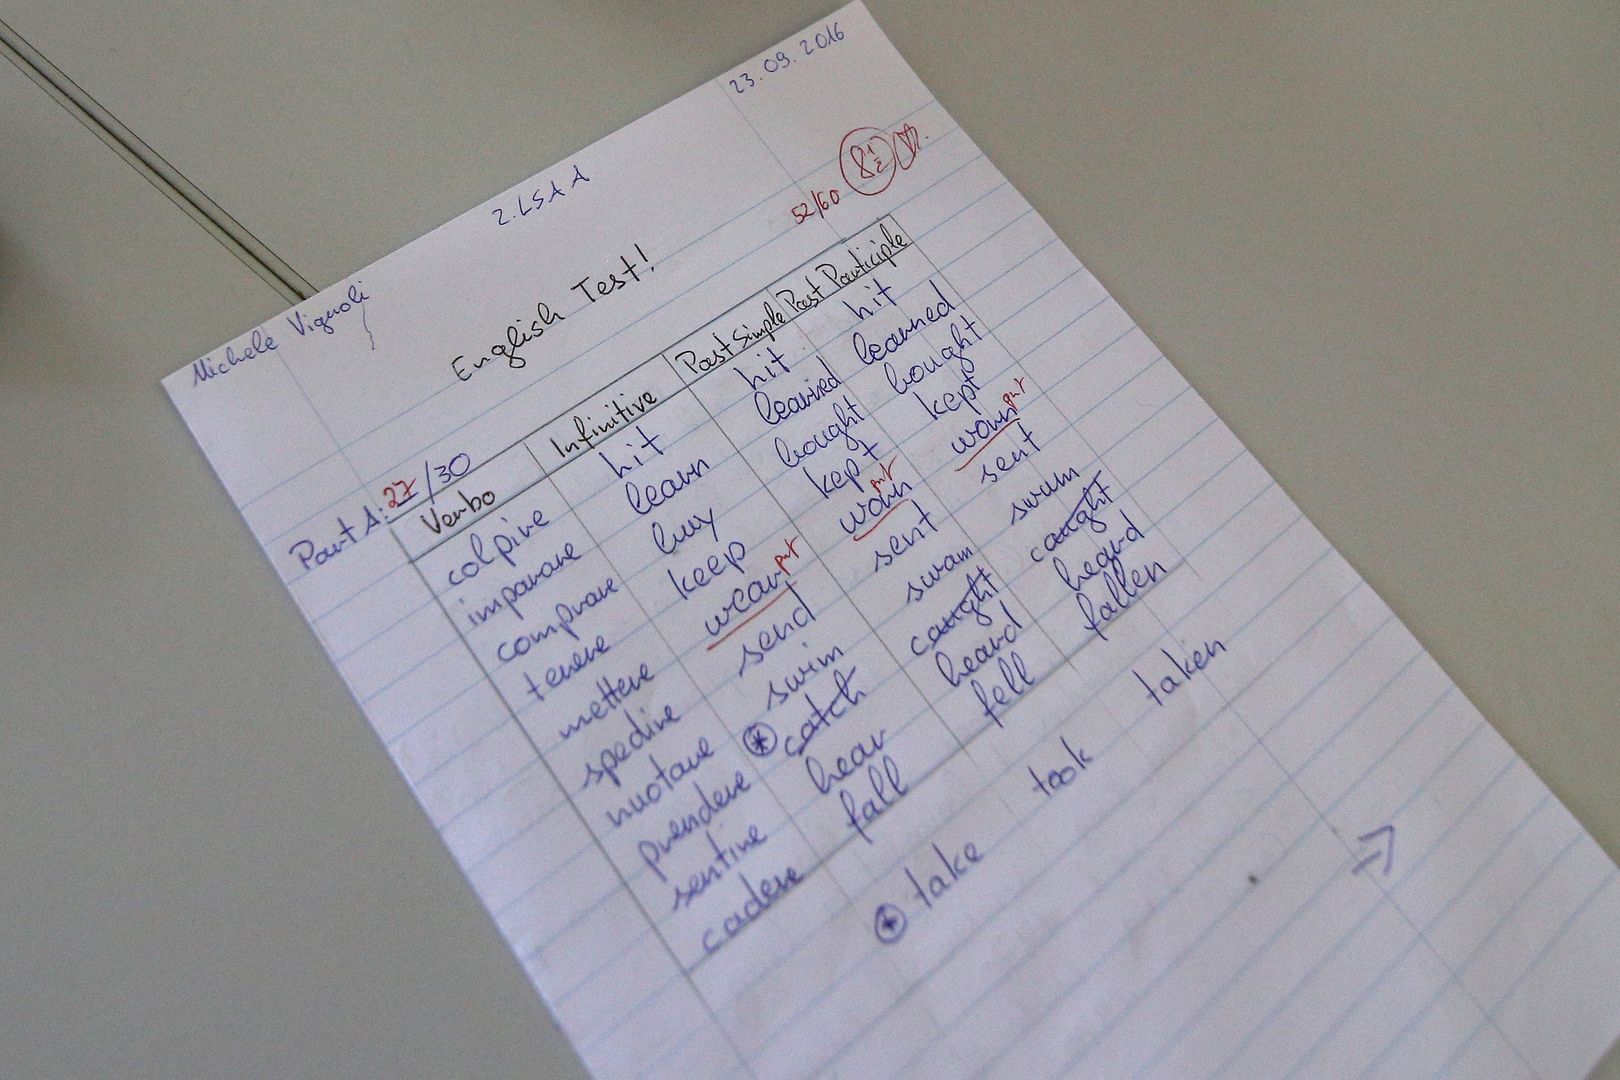 23.09.2016
2.LSA A
Michele Vignoli
52/60 8½
English Test!
Part A: 27/30
Verbo Infinitive Past Simple Past Participle
colpire hit hit hit
imparare learn learned learned
comprare buy bought bought
tenere keep kept kept
mettere wear put worn put worn put
spedire send sent sent
nuotare swim swam swum
prendere * catch caught caught
sentire hear heard heard
cadere fall fell fallen
* take took taken